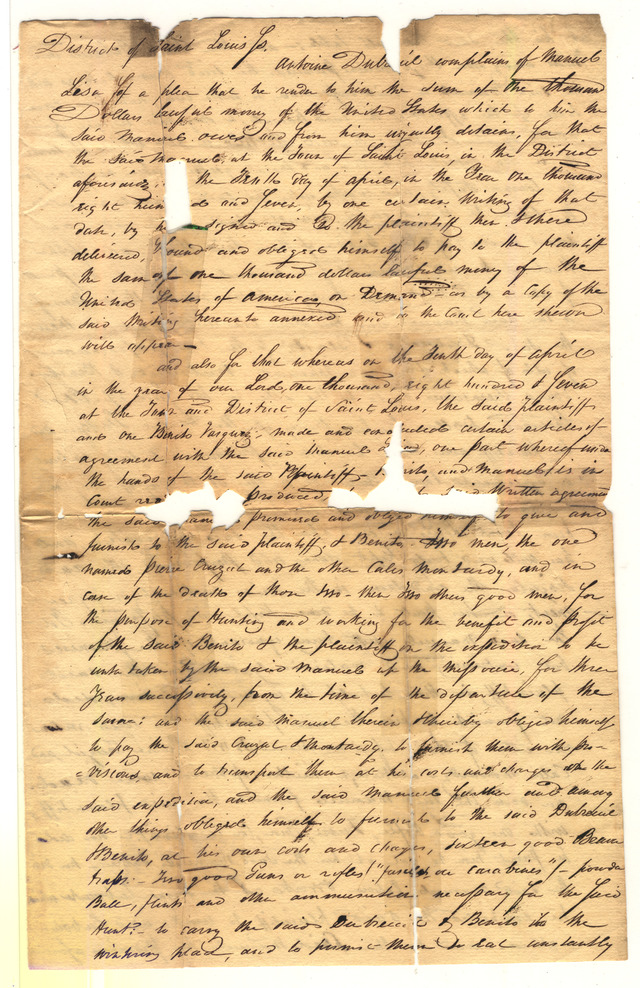 District of Saint Louis Ss.
Antoine Dubreuil complains of Manuel
Lisa of a plea that he render to him the sum of One thousand
Dollars lawful money of the United States which to him the
said Manuel owes and from him unjustly detains, for that
the said Manuel, at the Town of Saint Louis, in the District
aforesaid, the Tenth day of April, in the Year One thousand
eight hundred and Seven, by one certain Writing of that
date, by him signed and to the plaintiff then & there
delivered, bound and obliged himself to pay to the plaintiff
the sum of one thousand dollars lawful money of the
United States of America, on Demand as by a Copy of the
said Writing hereunto annexed and in the Court here shewn
will appear
and also for that whereas on the Tenth day of April
in the year of our Lord, one thousand, eight hundred & Seven
at the Town and District of Saint Louis, the said Plaintiff
and one Benito Vasquez, made and concluded certain articles of
agreement with the said Manuel Lisa, one part whereof under
the hands of the said Plaintiff, Benito, and Manuel is in
Court produced, said Written agreement
the said Manuel promised and obliged himself to give and
furnish to the said plaintiff, & Benito Two men, the one
named Pierre Cruzat and the other Calis Montardy, and in
case of the death of those two - then Two others good men, for
the purpose of Hunting and working for the benefit and profit
of the said Benito & the plaintiff on the expedition to be
undertaken by the said Manuel up the Missouri, for three
Years successively, from the time of the departure of the
same; and the said Manuel therein & thereby obliged himself
to pay the said Cruzat & Montardy, to furnish them with pro-
=visions and to transport them at his costs and charges on the
said expedition, and the said Manuel further and among
other things obliged himself to furnish to the said Dubreuil
& Benito, at his own costs and charges, sixteen good Beaver
traps - Two good Guns or rifles ("fusils ou carabines") - powder
Ball, flints and other ammunition necessary for the said
Hunt - to carry the said Dubreuil & Benito to the
wintering place, and to permit them to eat constantly